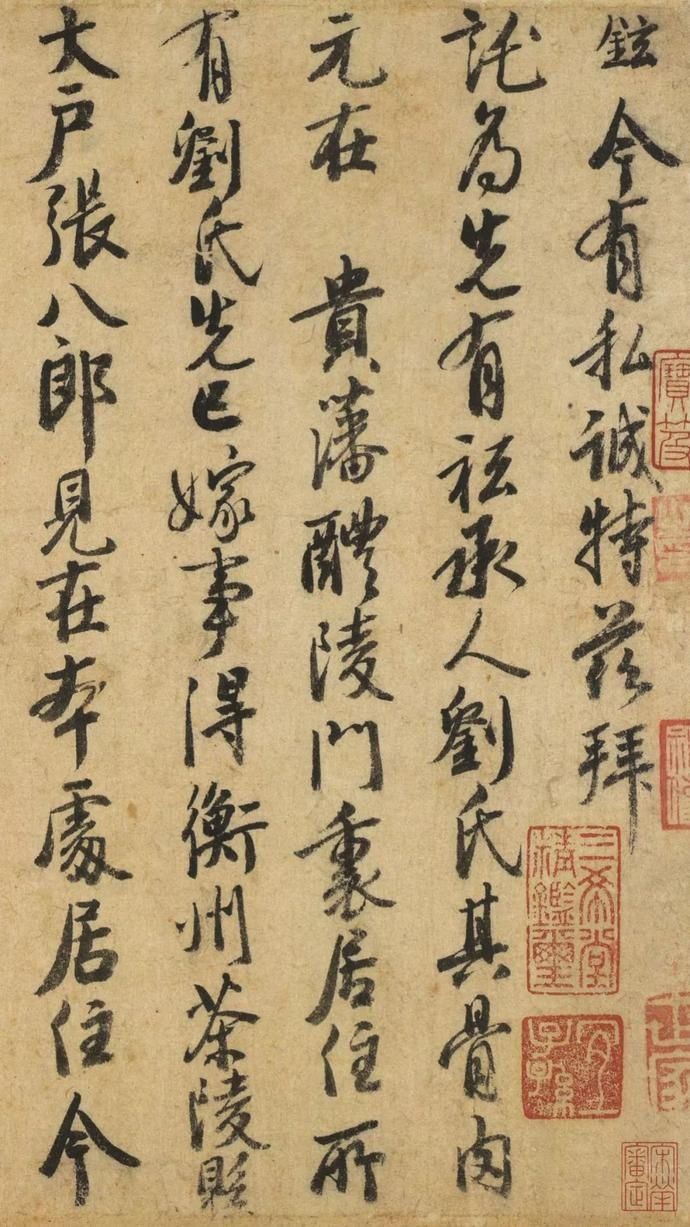 鉉今有私誠特兹拜
託為先有祗承人劉氏其骨肉
元在 貴藩醴陵門裏居住所
有劉氏先已嫁事得衡州茶陵縣
大户張八郎見在本處居住今
三希堂精鑑璽
宜子孫